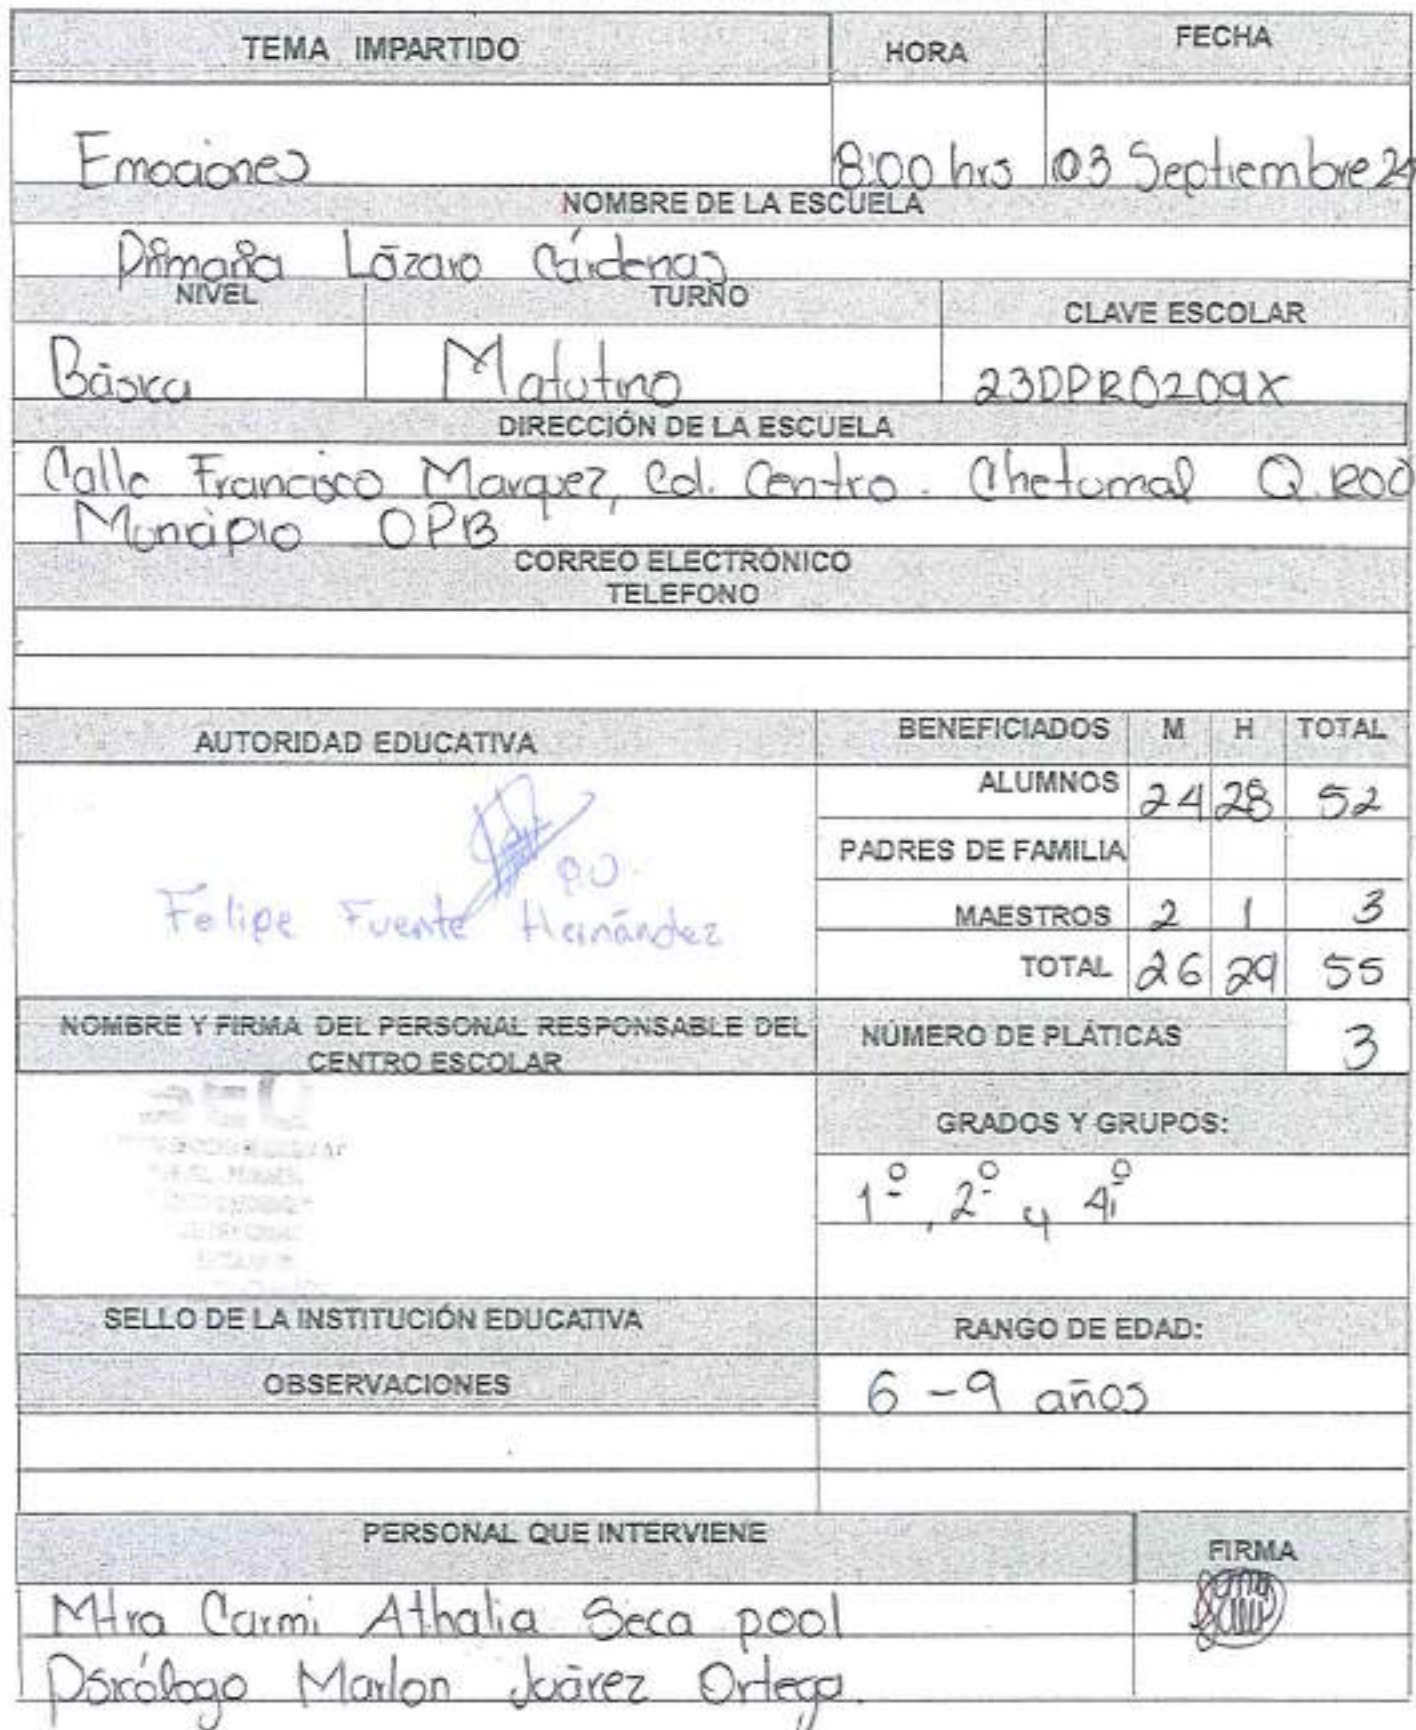 TEMA IMPARTIDO HORA FECHA
Emociones 8:00 hrs 03 Septiembre 24
NOMBRE DE LA ESCUELA
Primaria Lázaro Cárdenas
NIVEL TURNO CLAVE ESCOLAR
Básica Matutino 23DPR0209X
DIRECCIÓN DE LA ESCUELA
Calle Francisco Marquez, Col. Centro. Chetumal Q.ROO
Municipio OPB
CORREO ELECTRÓNICO
TELEFONO
AUTORIDAD EDUCATIVA BENEFICIADOS M H TOTAL
ALUMNOS 24 28 52
PADRES DE FAMILIA
P.O.
Felipe Fuente Hernández
MAESTROS 2 1 3
TOTAL 26 29 55
NOMBRE Y FIRMA DEL PERSONAL RESPONSABLE DEL CENTRO ESCOLAR NÚMERO DE PLÁTICAS 3
GRADOS Y GRUPOS:
1º, 2º y 4º
SELLO DE LA INSTITUCIÓN EDUCATIVA RANGO DE EDAD:
OBSERVACIONES 6 - 9 años
PERSONAL QUE INTERVIENE FIRMA
Mtra Carmi Athalia Seca pool
Psicólogo Marlon Juárez Ortega.